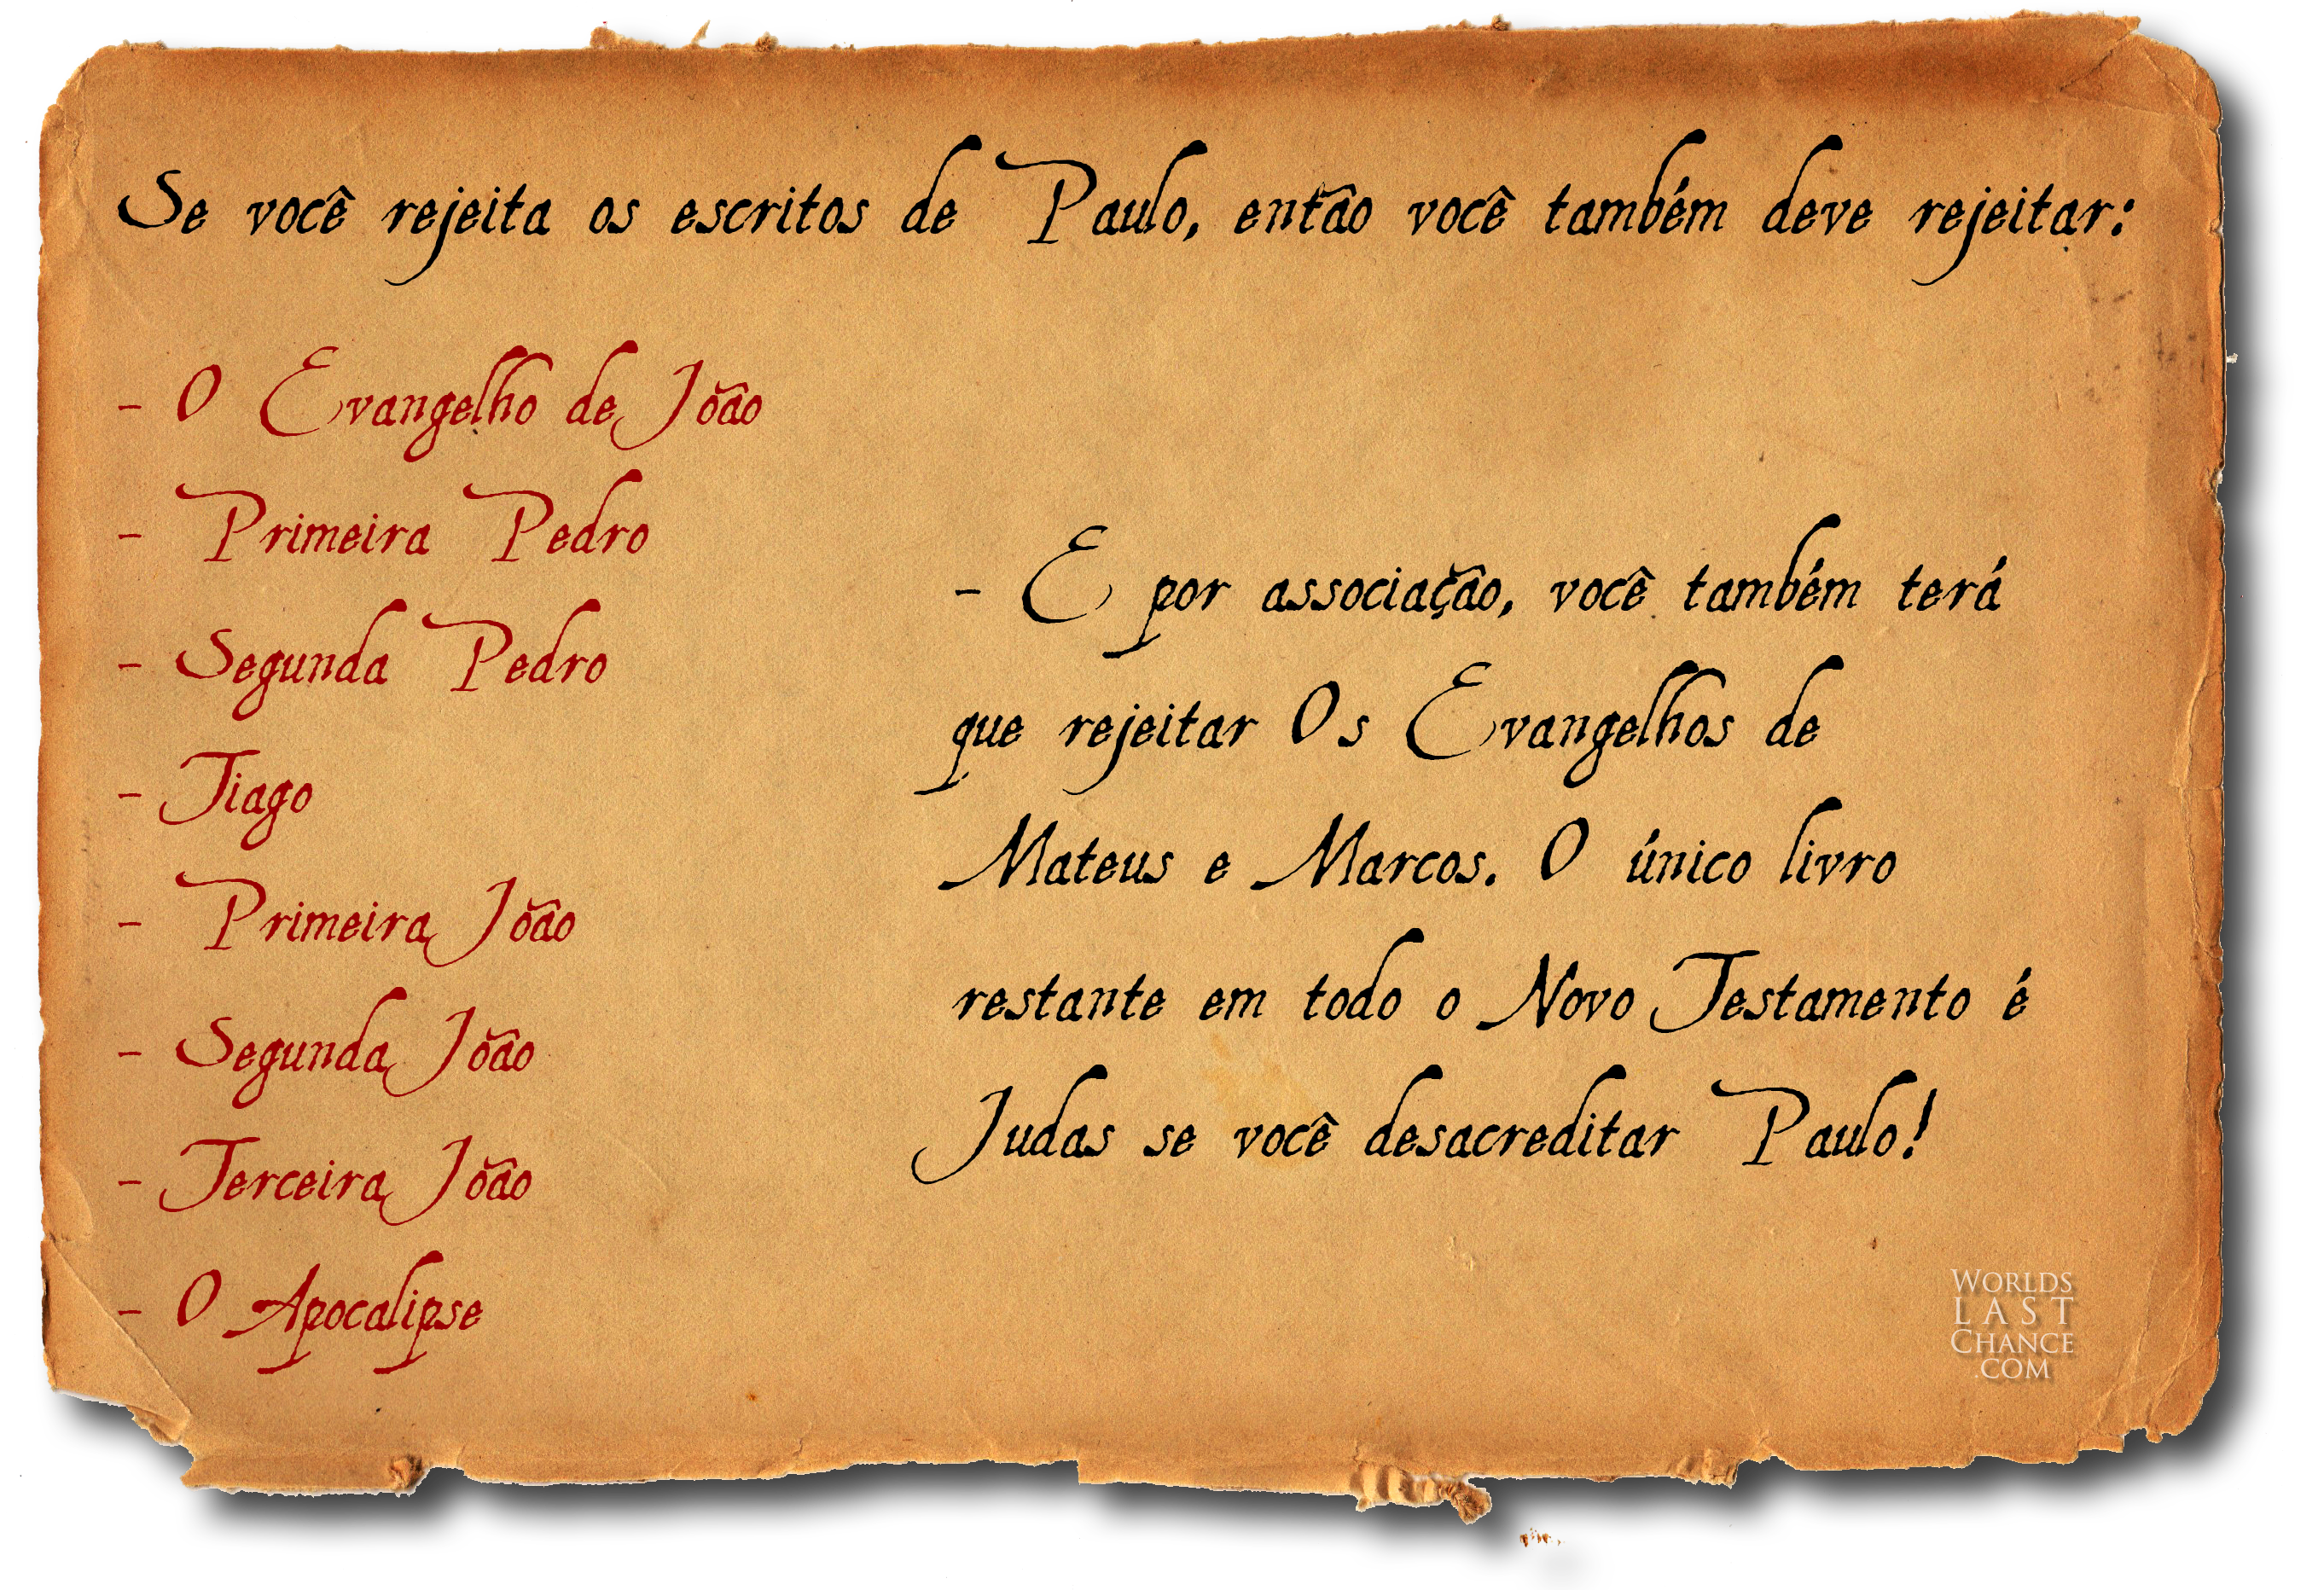 Se você rejeita os escritos de Paulo, então você também deve rejeitar:
- O Evangelho de João
- Primeira Pedro
- Segunda Pedro
- Tiago
- Primeira João
- Segunda João
- Terceira João
- O Apocalipse
- E por associação, você também terá
que rejeitar Os Evangelhos de
Mateus e Marcos. O único livro
restante em todo o Novo Testamento é
Judas se você desacreditar Paulo!
WORLDS
LAST
CHANCE
.COM